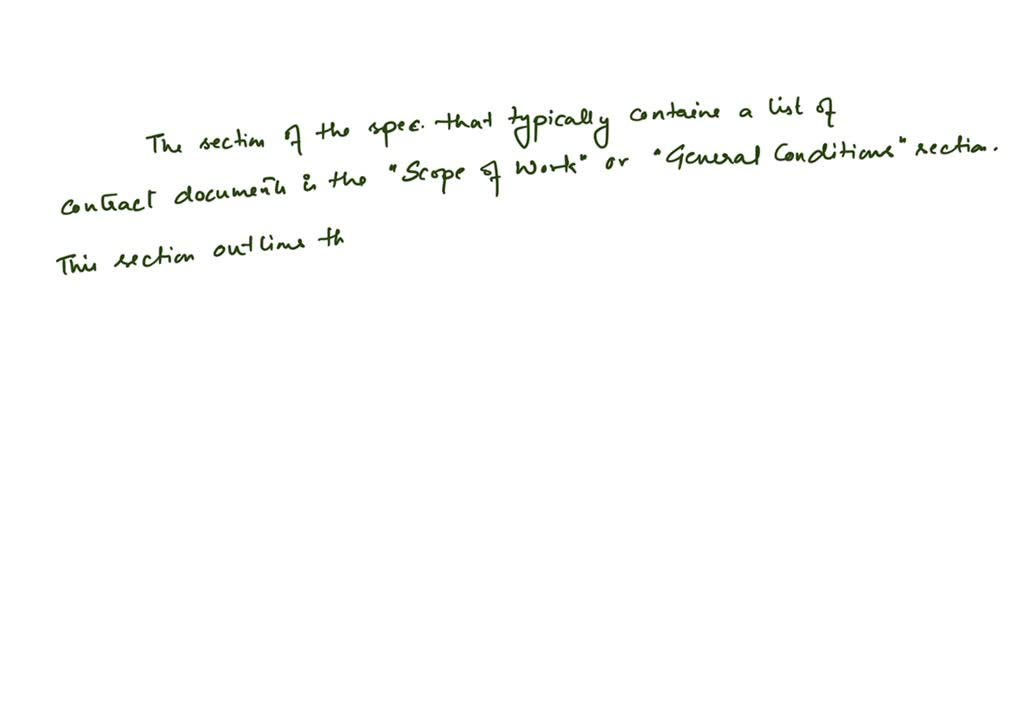 The section of the spec. that typically contains a list of
contract documents is the "Scope of Work" or "General Conditions" section.
This section outlines th